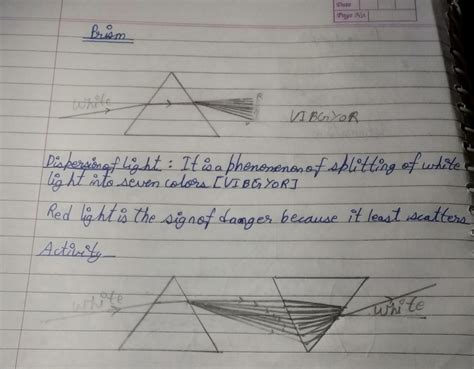 Date
Page No.
Prism
White
R
V
VIBGYOR
Dispersion of light : It is a phenomenon of splitting of white
light into seven colors [VIBGYOR]
Red light is the sign of danger because it least scatters
Activity
White
White